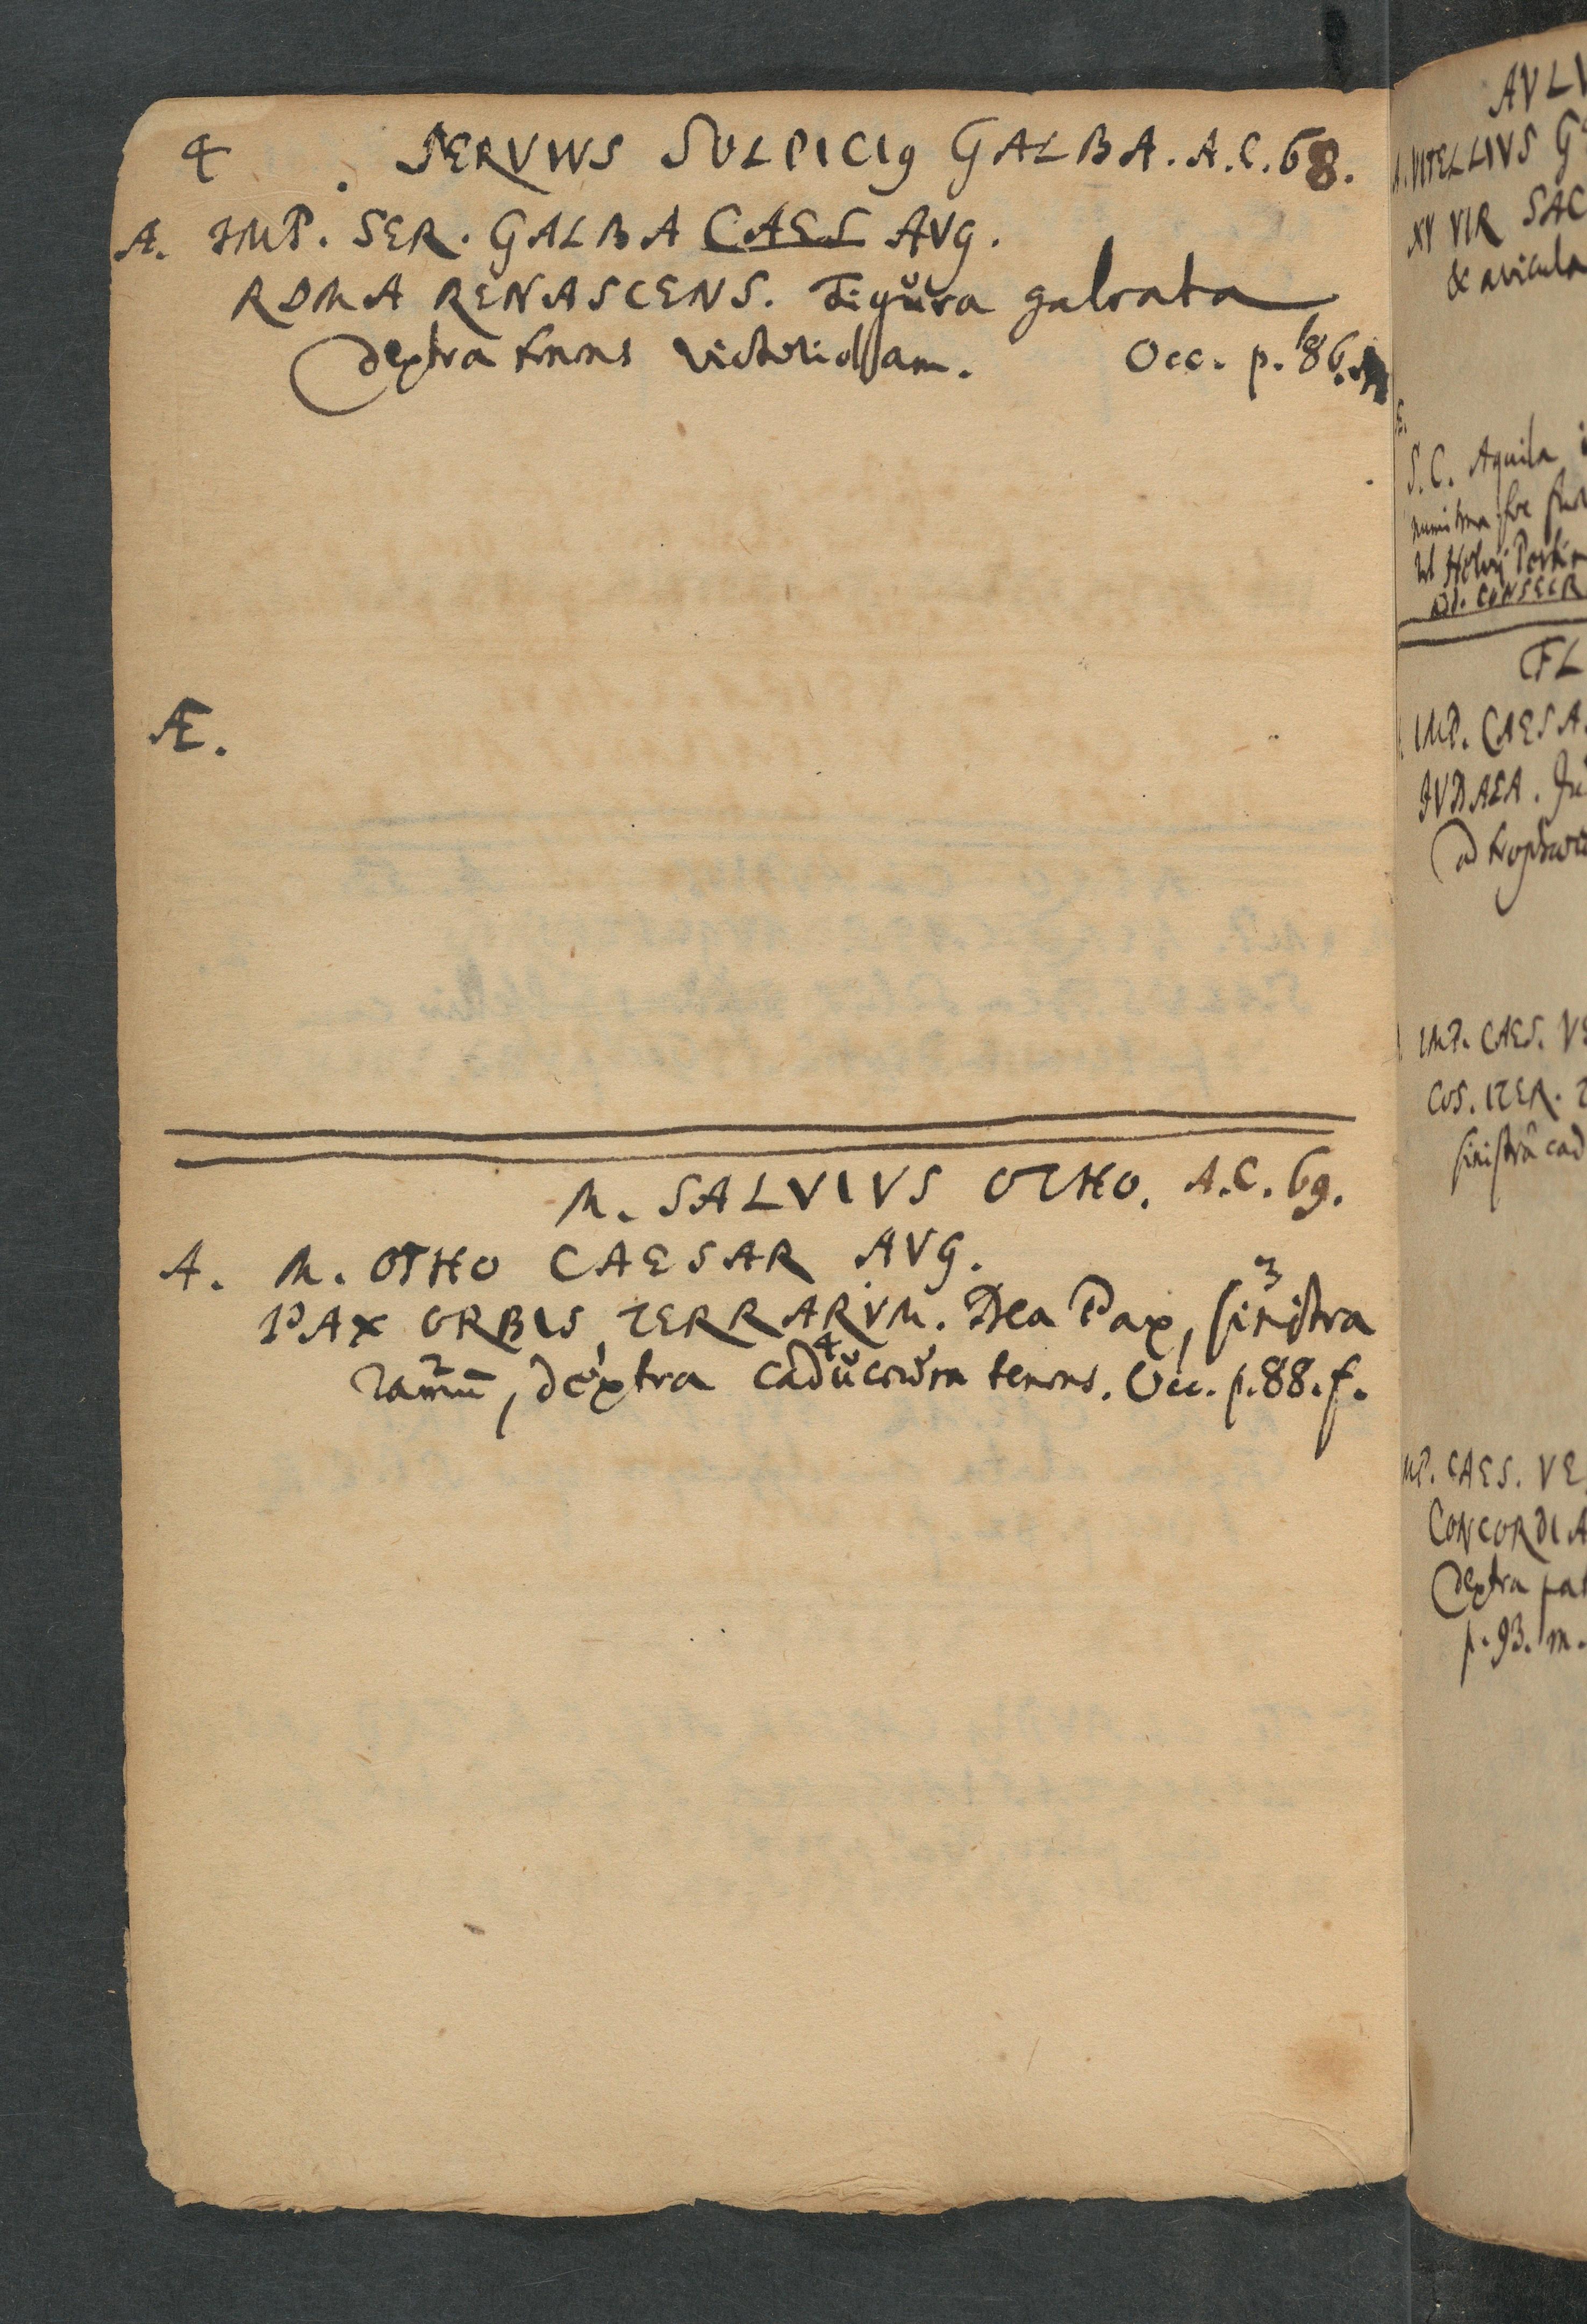 4 SERVIVS SULPICI9 GALBA. A.C. 68.
A. IMP. SER. GALBA CAES AVG.
ROMA RENASCENS. Figŭra galeata
dextra tenens victoriolam. Occ. p. 86.
Æ.
M. SALVIVS OTHO. A.C. 69.
A. M. OTHO CAESAR AVG.
PAX ORBIS TERRARVM. Dea Pax, sinistra 3
ramū 2, dextra 1 cadŭceŭm 4 tenens. Occ. p. 88. f.
AVLV
A. VITELLIVS G
XV VIR SAC
& avicula
S.C. Aquila
ad. CONSECR
FL
IMP. CAESA
IVDAEA.
IMP. CAES. VE
COS. ITER. T
sinistrâ cad
IMP. CAES. VE
CONCORDIA
Dextra pat
p. 93. m.